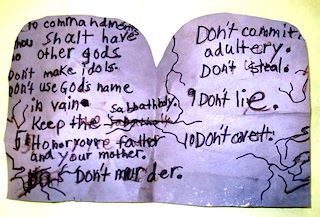 10 commandments
thou shalt have
no other gods
Don't make idols.
Don't use God's name
in vain.
Keep the sabbathday.
5 Honor youre father
and your mother.
Don't murder.
Don't commit
adultery.
Don't steal.
9 Don't lie.
10 Don't covet.